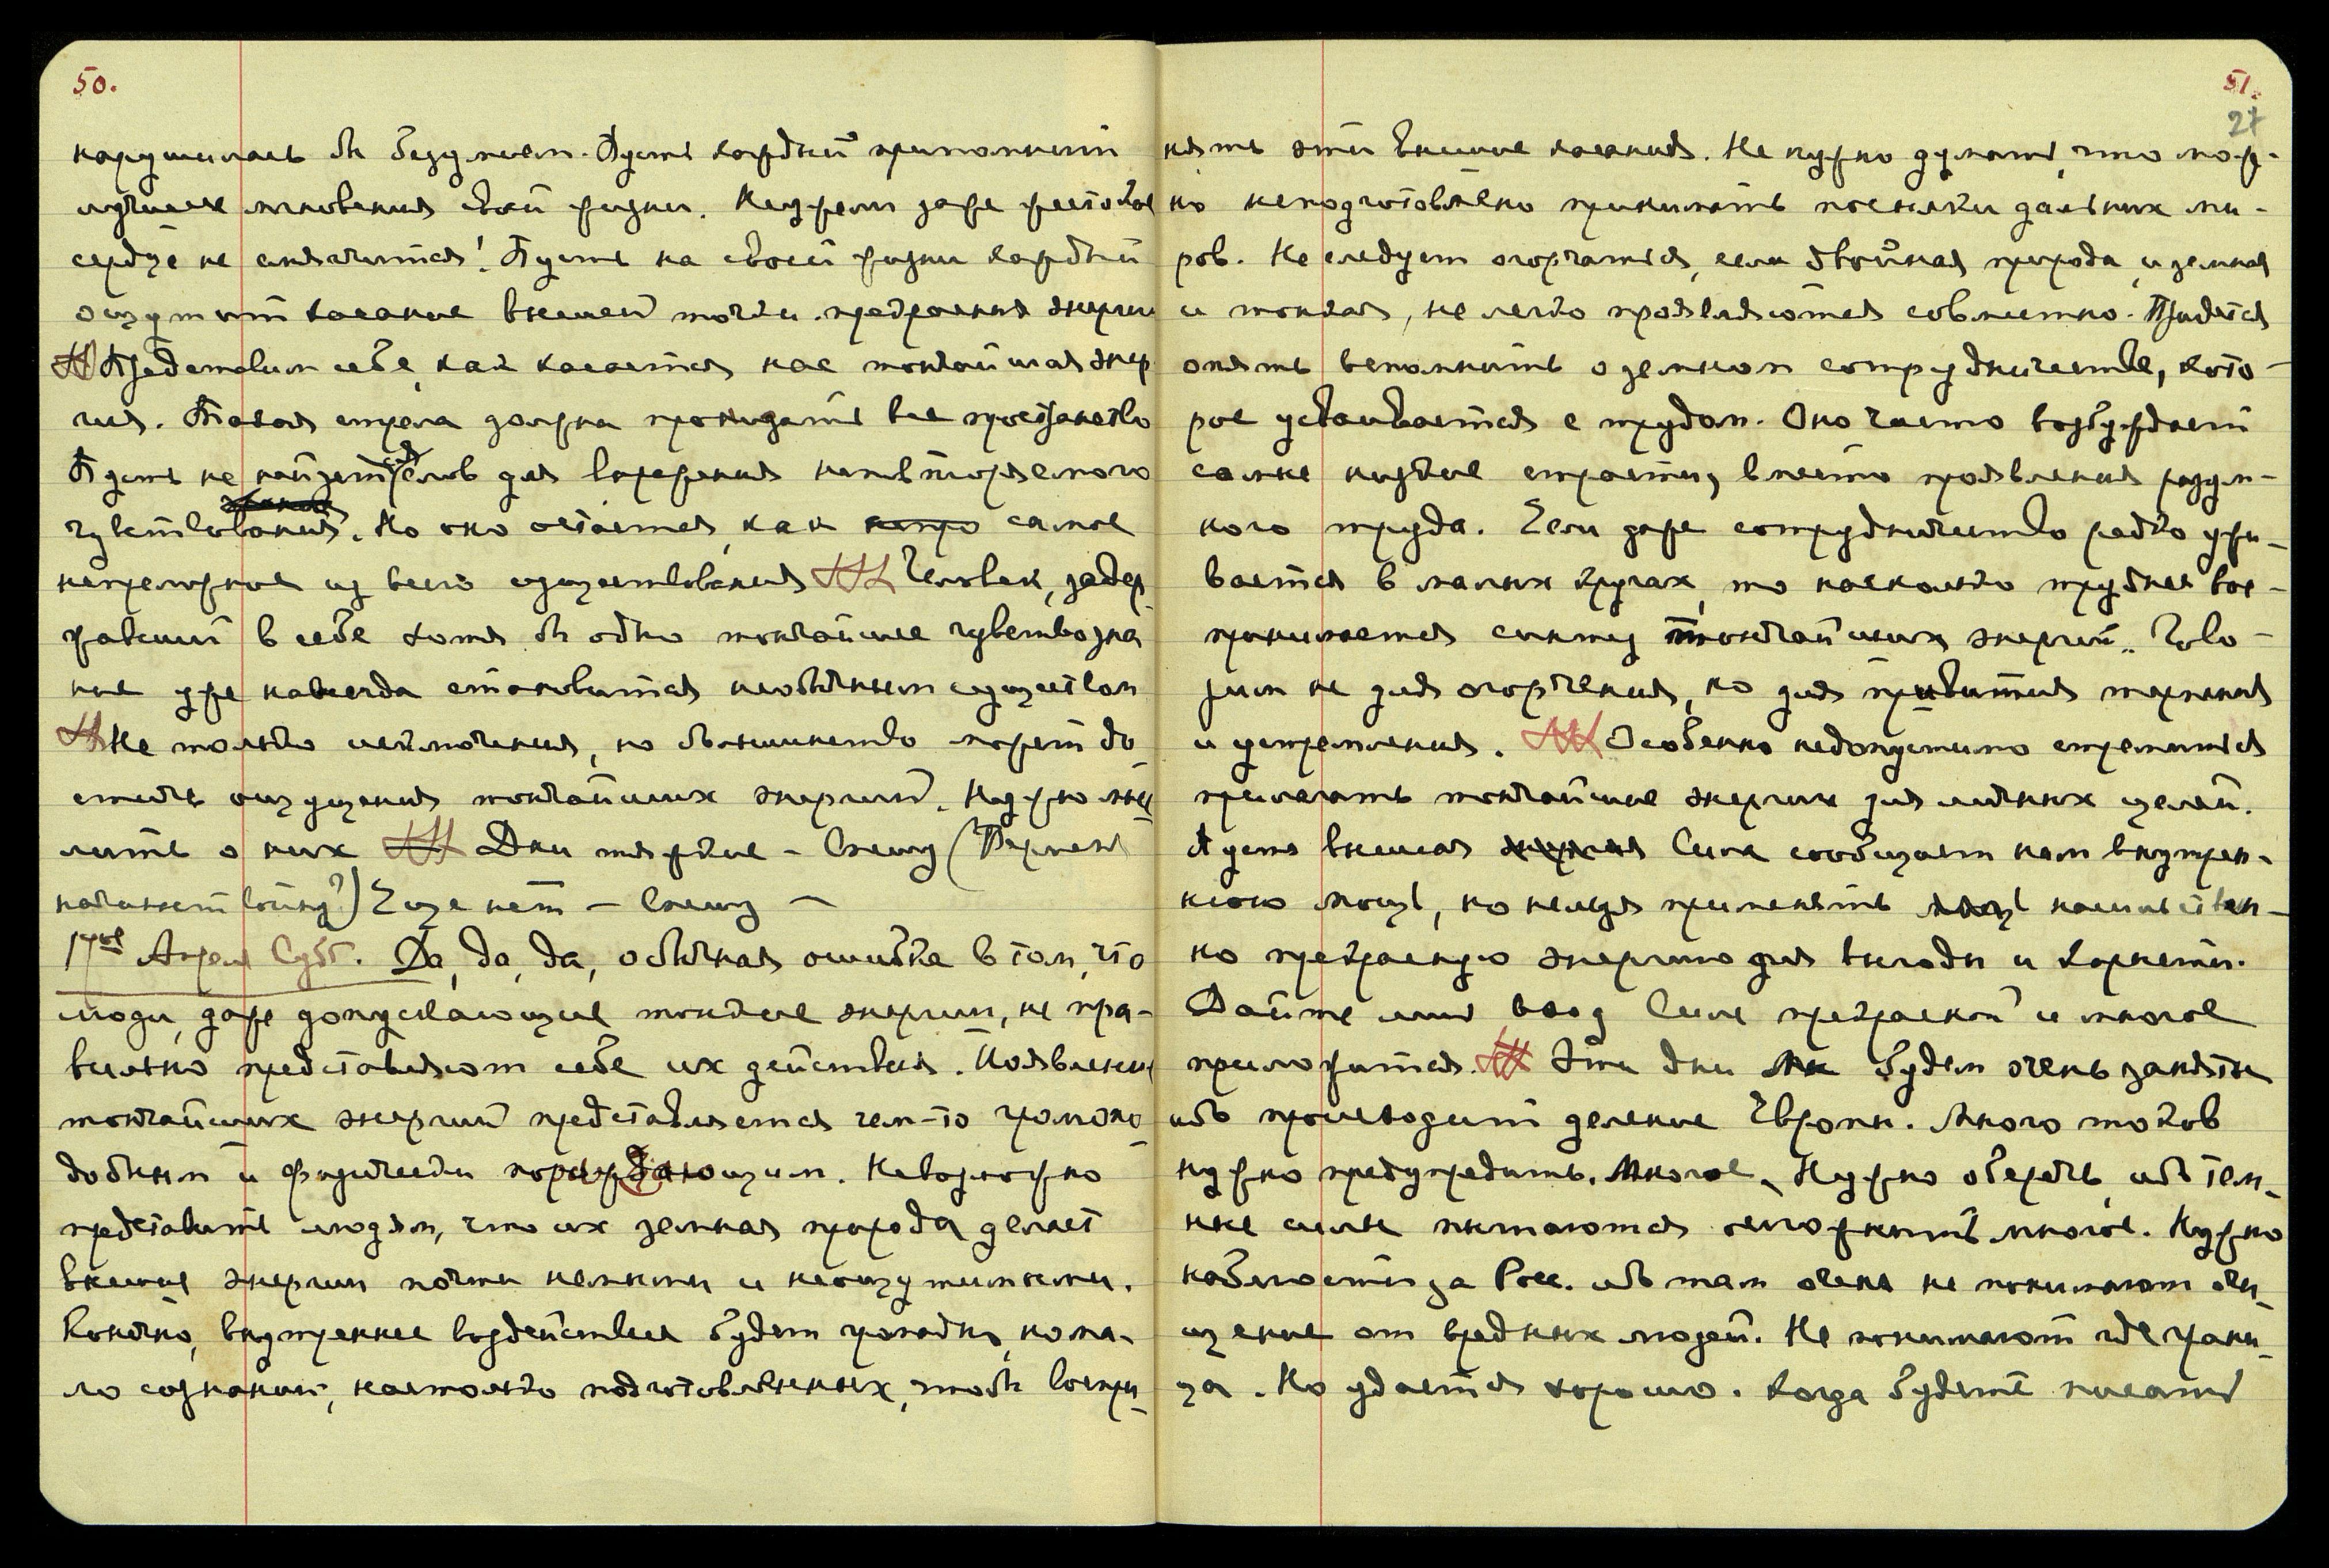 50.
нарушилась бы безумием. Пусть каждый припомнит
лучшие мгновения свой жизни. Неужели даже жестокое
сердце не смягчится! Пусть на своей жизни каждый
ощутит касание высшей точки прекрасныя энергии
Представим себе, как касается нас тончайшая энер
гия. Такая стрела должна пронизать все пространство
Пусть не найдется слов для выражения неповторяемого
чувствования. Но оно остается, как самое
непреложное из всего существования Человек, задер
жавший в себе хотя бы одно тончайшее чувствозна
ние уже навсегда становится необычным существом
Не только исключения, но большинство может до
стичь ощущения тончайших энергий. Нужно мыс
лить о них Дни тяжкие – Спешу (Германия
начинает войну?) Еще нет – Спешу –
17ое Апреля Субб. Да, да, да, обычная ошибка в том, что
люди, даже допускающие тонкие энергии, не пра-
вильно представляют себе их действия. Появление
тончайших энергий представляется чем-то громопо
добным и физически поражающим. Невозможно
представить людям, что их земная природа делает
высшие энергии почти немыми и неощутимыми.
Конечно, внутреннее воздействие будет громадно, но ма-
ло сознаний, настолько подготовленных, чтобы воспри-
51.
27
нять эти высшие касания. Не нужно думать, что мож-
но неподготовленно принимать посылки дальних ми-
ров. Не следует огорчаться, если двойная природа, и земная
и тонкая, не легко проявляются совместно. Придется
опять вспомнить о земном сотрудничестве, кото-
рое усваивается с трудом. Оно часто возбуждает
самые низкие страсти, вместо проявления разум-
ного труда. Если даже сотрудничество редко ужи-
вается в малых кругах, то насколько труднее вос-
принимается синтез тончайших энергий. Гово-
рим не для огорчения, но для привития терпения
и устремления. Особенно недопустимо стремиться
прилагать тончайшие энергии для личных целей.
Пусть высшая Сила сообщает нам внутрен-
нюю мощь, но нельзя применять насильствен-
но прекрасную энергию для выгоды и корысти.
Дайте лишь вход Силе прекрасной и многое
приложится. Эти дни Мы будем очень заняты
ибо происходит деление Европы. Много токов
нужно предупредить. Многое, Нужно сберечь, ибо тем-
ные силы пытаются осложнить многое. Нужно
наблюсти за Росс. ибо там очень не понимают очи-
щение от вредных людей. Не понимают где грани-
ца. Но удается хорошо. Когда будете писать